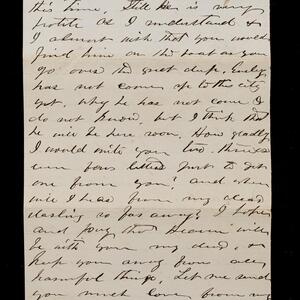 this time, Still he is very
polite as I understand &
I almost wish that you would
find him on the boat as you
go over the great deep. Emly
has not come up to this city
yet, why he has not come I
do not know, but I think that
he will be here soon, How gladly
I would write you two, three
even four letters just to get
one from you! and when
will I hear from my dear
darling so far away? I hope
and pray that Heaven will
be with you my dear, &
keep you away from all
harmful things, Let me send
you much love from my